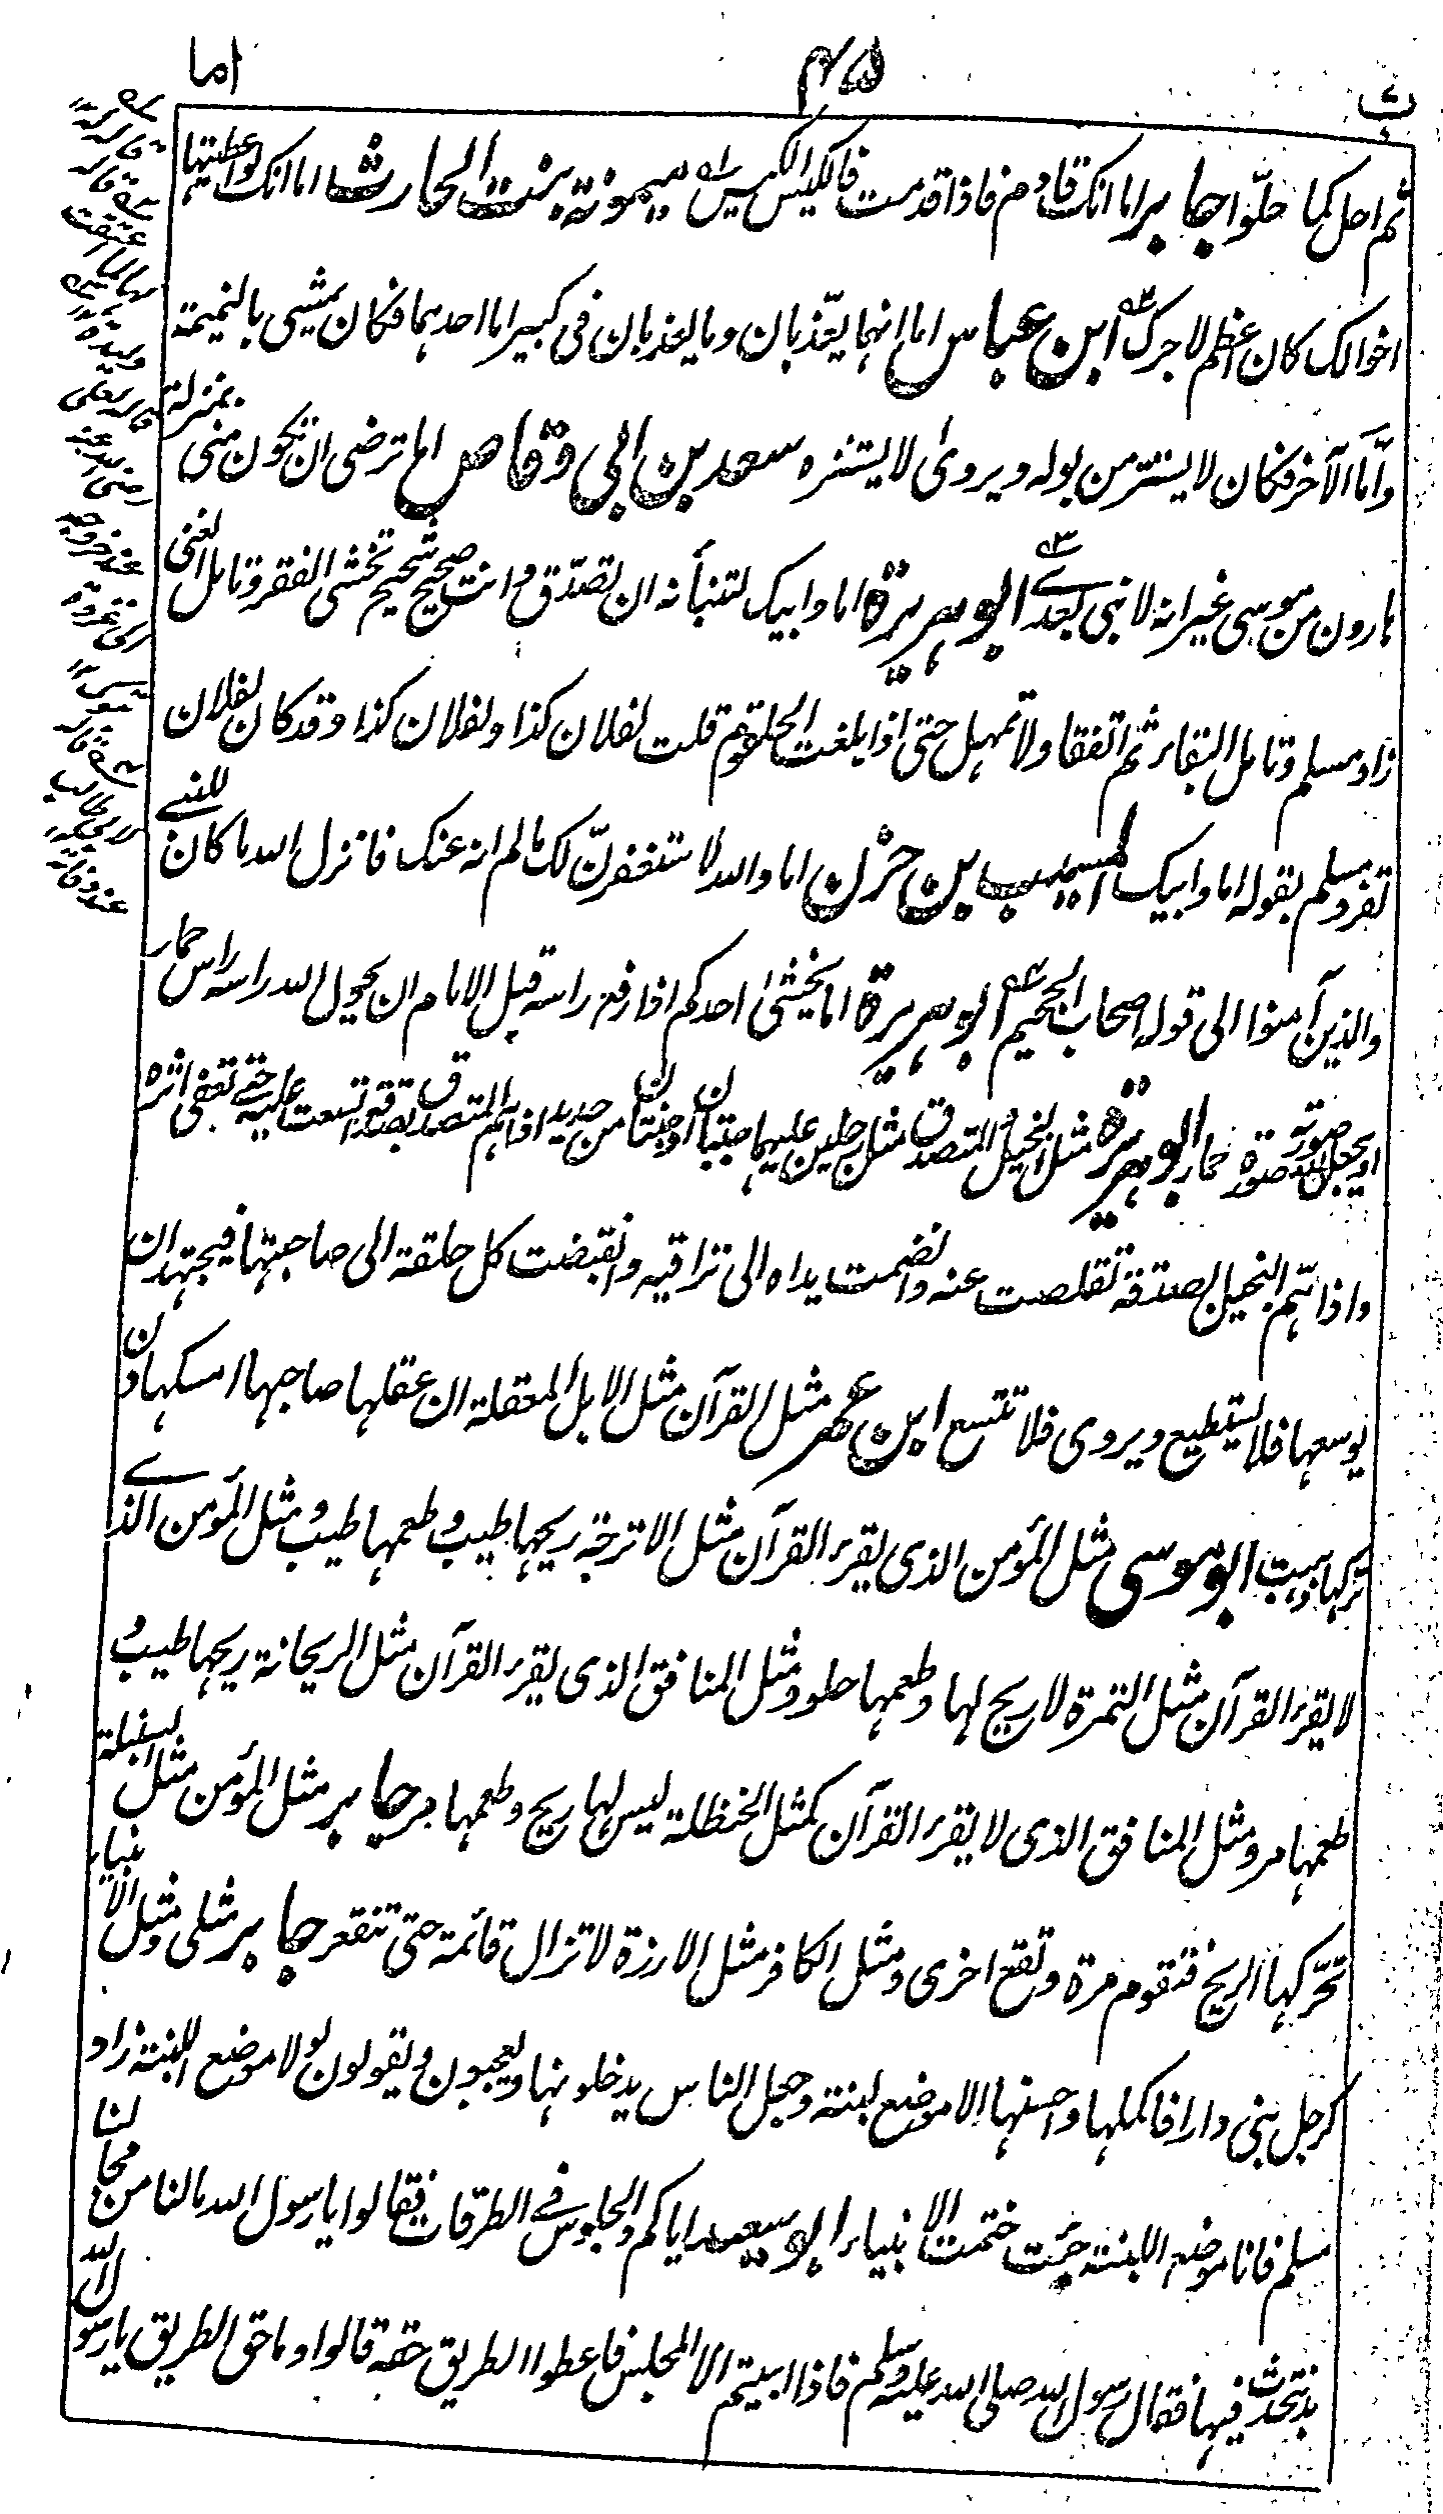 اما
ثم احل كما حلّوا جابر اما انك قادم فاذا قدمت فالكيس الكيس ميمونة بنت الحارث اما انك لو اعطيتها
اخوالك كان اعظم لاجرك ابن عباس اما انهما يعذّبان وما يعذبان فى كبير اما احدهما فكان يمشى بالنميمة
وأمّا الآخر فكان لا يستتر من بوله ويروى لا يستنزه سعد بن ابي وقاص اما ترضى ان تكون منى بمنزلة
هارون من موسى غير انه لا نبى بعدے ابو هريرة اما وابيك لتنبأنه ان تصدّق وانت صحيح شحيح تخشى الفقر وتامل الغنى
زاد مسلم وتامل البقاء ثم اتفقا ولا تمهل حتى اذا بلغت الحلقوم قلت لفلان كذا ولفلان كذا وقد كان لفلان
تفرد مسلم بقوله اما وابيك المسيب بن حزن اما والله لاستغفرنّ لك مالم انه عنك فانزل الله ما كان للنبے
والذين آمنوا الى قوله اصحاب الجحيم ابو هريرة اما يخشى احدكم اذا رفع راسه قبل الامام ان يحول الله راسه راس حمار
او يجعل الله صورته صورة حمار ابو هريرة مثل البخيل والمتصدق مثل رجلين عليهما جبتان او جنتان من حديد اذا هم المتصدق بصدقة اتسعت عليه حتے تعفى اثره
واذا همّ البخيل بصدقة تقلصت عنه وانضمت يداه الى تراقيه وانقبضت كل حلقة الى صاحبتها فيجتهد ان
يوسعها فلا يستطيع ويروى فلا تتسع ابن عمر مثل القرآن مثل الابل المعقلة ان عقلها صاحبها امسكها وان
تركها ذهبت ابو موسى مثل المؤمن الذى يقرء القرآن مثل الاترجة ريحها طيب وطعمها طيب ومثل المؤمن الذے
لا يقرء القرآن مثل التمرة لا ريح لها وطعمها حلو ومثل المنافق الذى يقرء القرآن مثل الريحانة ريحها طيب و
طعمها مر ومثل المنافق الذى لا يقرء القرآن كمثل الحنظلة ليس لها ريح وطعمها مر جابر مثل المؤمن مثل السنبلة
تحرّكها الريح فتقوم مرة وتقع اخرى ومثل الكافر مثل الارزة لا تزال قائمة حتى تنقعر جابر مثلى ومثل الانبياء
كرجل بنى دارا فاكملها واحسنها الا موضع لبنة وجعل الناس يدخلونها ويعجبون ويقولون لولا موضع اللبنة زاد
مسلم فانا موضع اللبنة جئت ختمت الانبياء ابو سعيد اياكم والجلوس فے الطرقات فقالوا يا رسول الله مالنا من مجالسنا
بد نتحدث فيها فقال رسول الله صلى الله عليه وسلم فاذا ابيتم الا المجلس فاعطوا الطريق حقه قالوا وما حق الطريق يا رسول الله